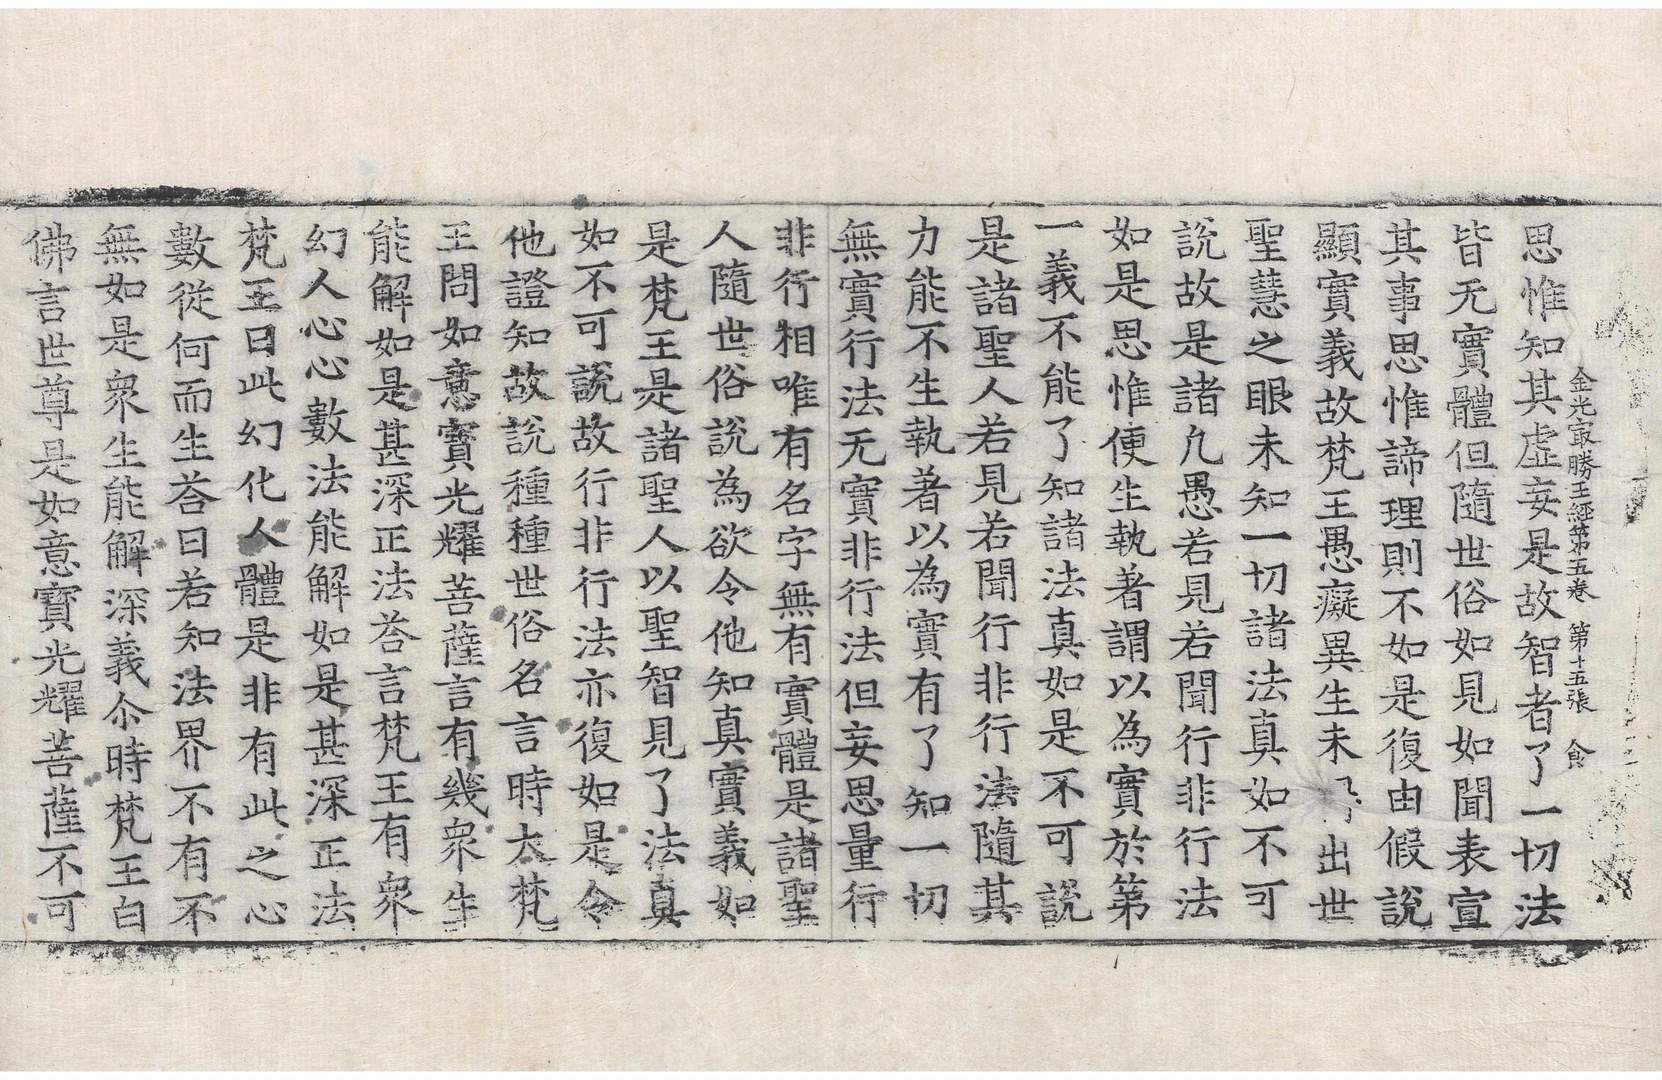 金光㝡勝王經第五卷　第十五張　食
思惟知其虛妄是故智者了一切法
皆无實體但隨世俗如見如聞表宣
其事思惟諦理則不如是復由假說
顯實義故梵王愚癡異生未出世
聖慧之眼未知一切諸法真如不可
說故是諸凡愚若見若聞行非行法
如是思惟便生執著謂以為實於第
一義不能了知諸法真如是不可說
是諸聖人若見若聞行非行法隨其
力能不生執著以為實有了知一切
無實行法无實非行法但妄思量行
非行相唯有名字無有實體是諸聖
人隨世俗說為欲令他知真實義如
是梵王是諸聖人以聖智見了法真
如不可說故行非行法亦復如是令
他證知故說種種世俗名言時大梵
王問如意寶光耀菩薩言有幾衆生
能解如是甚深正法荅言梵王有衆
幻人心心數法能解如是甚深正法
梵王曰此幻化人體是非有此之心
數從何而生荅曰若知法界不有不
無如是衆生能解深義尒時梵王白
佛言世尊是如意寶光耀菩薩不可